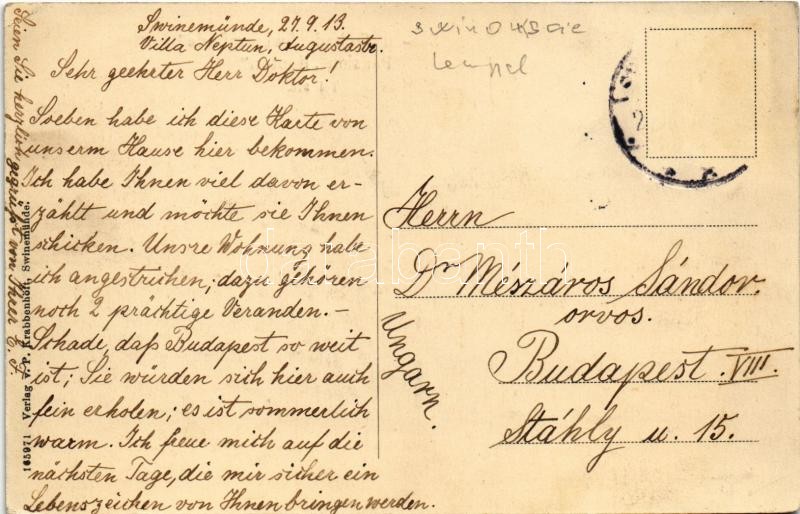 Swinemünde, 27.9.13.
Villa Neptun, Augustastr.
Sehr geehrter Herr Doktor!
Soeben habe ich diese Karte von
unserm Hause hier bekommen.
Ich habe Ihnen viel davon er-
zählt und möchte sie Ihnen
schicken. Unsre Wohnung habe
ich angestrichen; dazu gehören
noch 2 prächtige Veranden.-
Schade, daß Budapest so weit
ist; Sie würden sich hier auch
fein erholen; es ist sommerlich
warm. Ich freue mich auf die
nächsten Tage, die mir sicher ein
Lebenszeichen von Ihnen bringen werden.
Seien Sie herzlich gegrüßt von Ihrer E. J.
165971 Verlag v. P. Krabbenhöft, Swinemünde.
Herrn
Dr Mészáros Sándor.
orvos.
Budapest. VIII.
Stáhly u. 15.
Ungarn.
darabanth